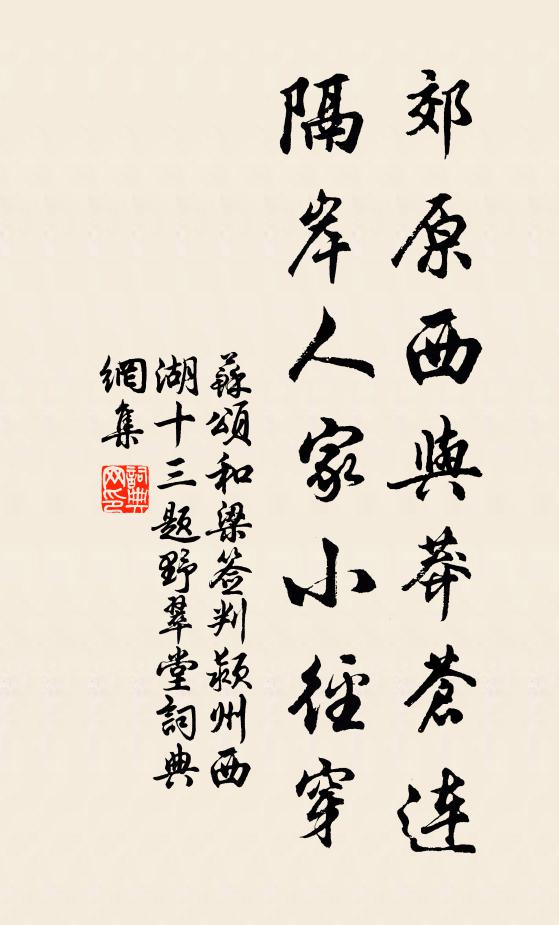 郊原西與莽蒼連
隔岸人家小徑穿
蘇頌和梁签判颍州西
湖十三题野翠堂詞典
網集
詞典网印